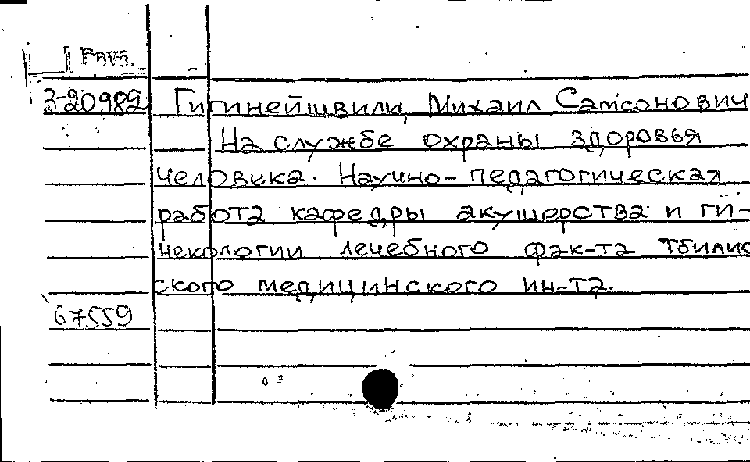 3-20982 Гигинейшвили, Михаил Самсонович
На службе охраны здоровья
человека. Научно-педагогическая
работа кафедры акушерства и ги-
некологии лечебного фак-та Тбилис
ского медицинского ин-та.
67559